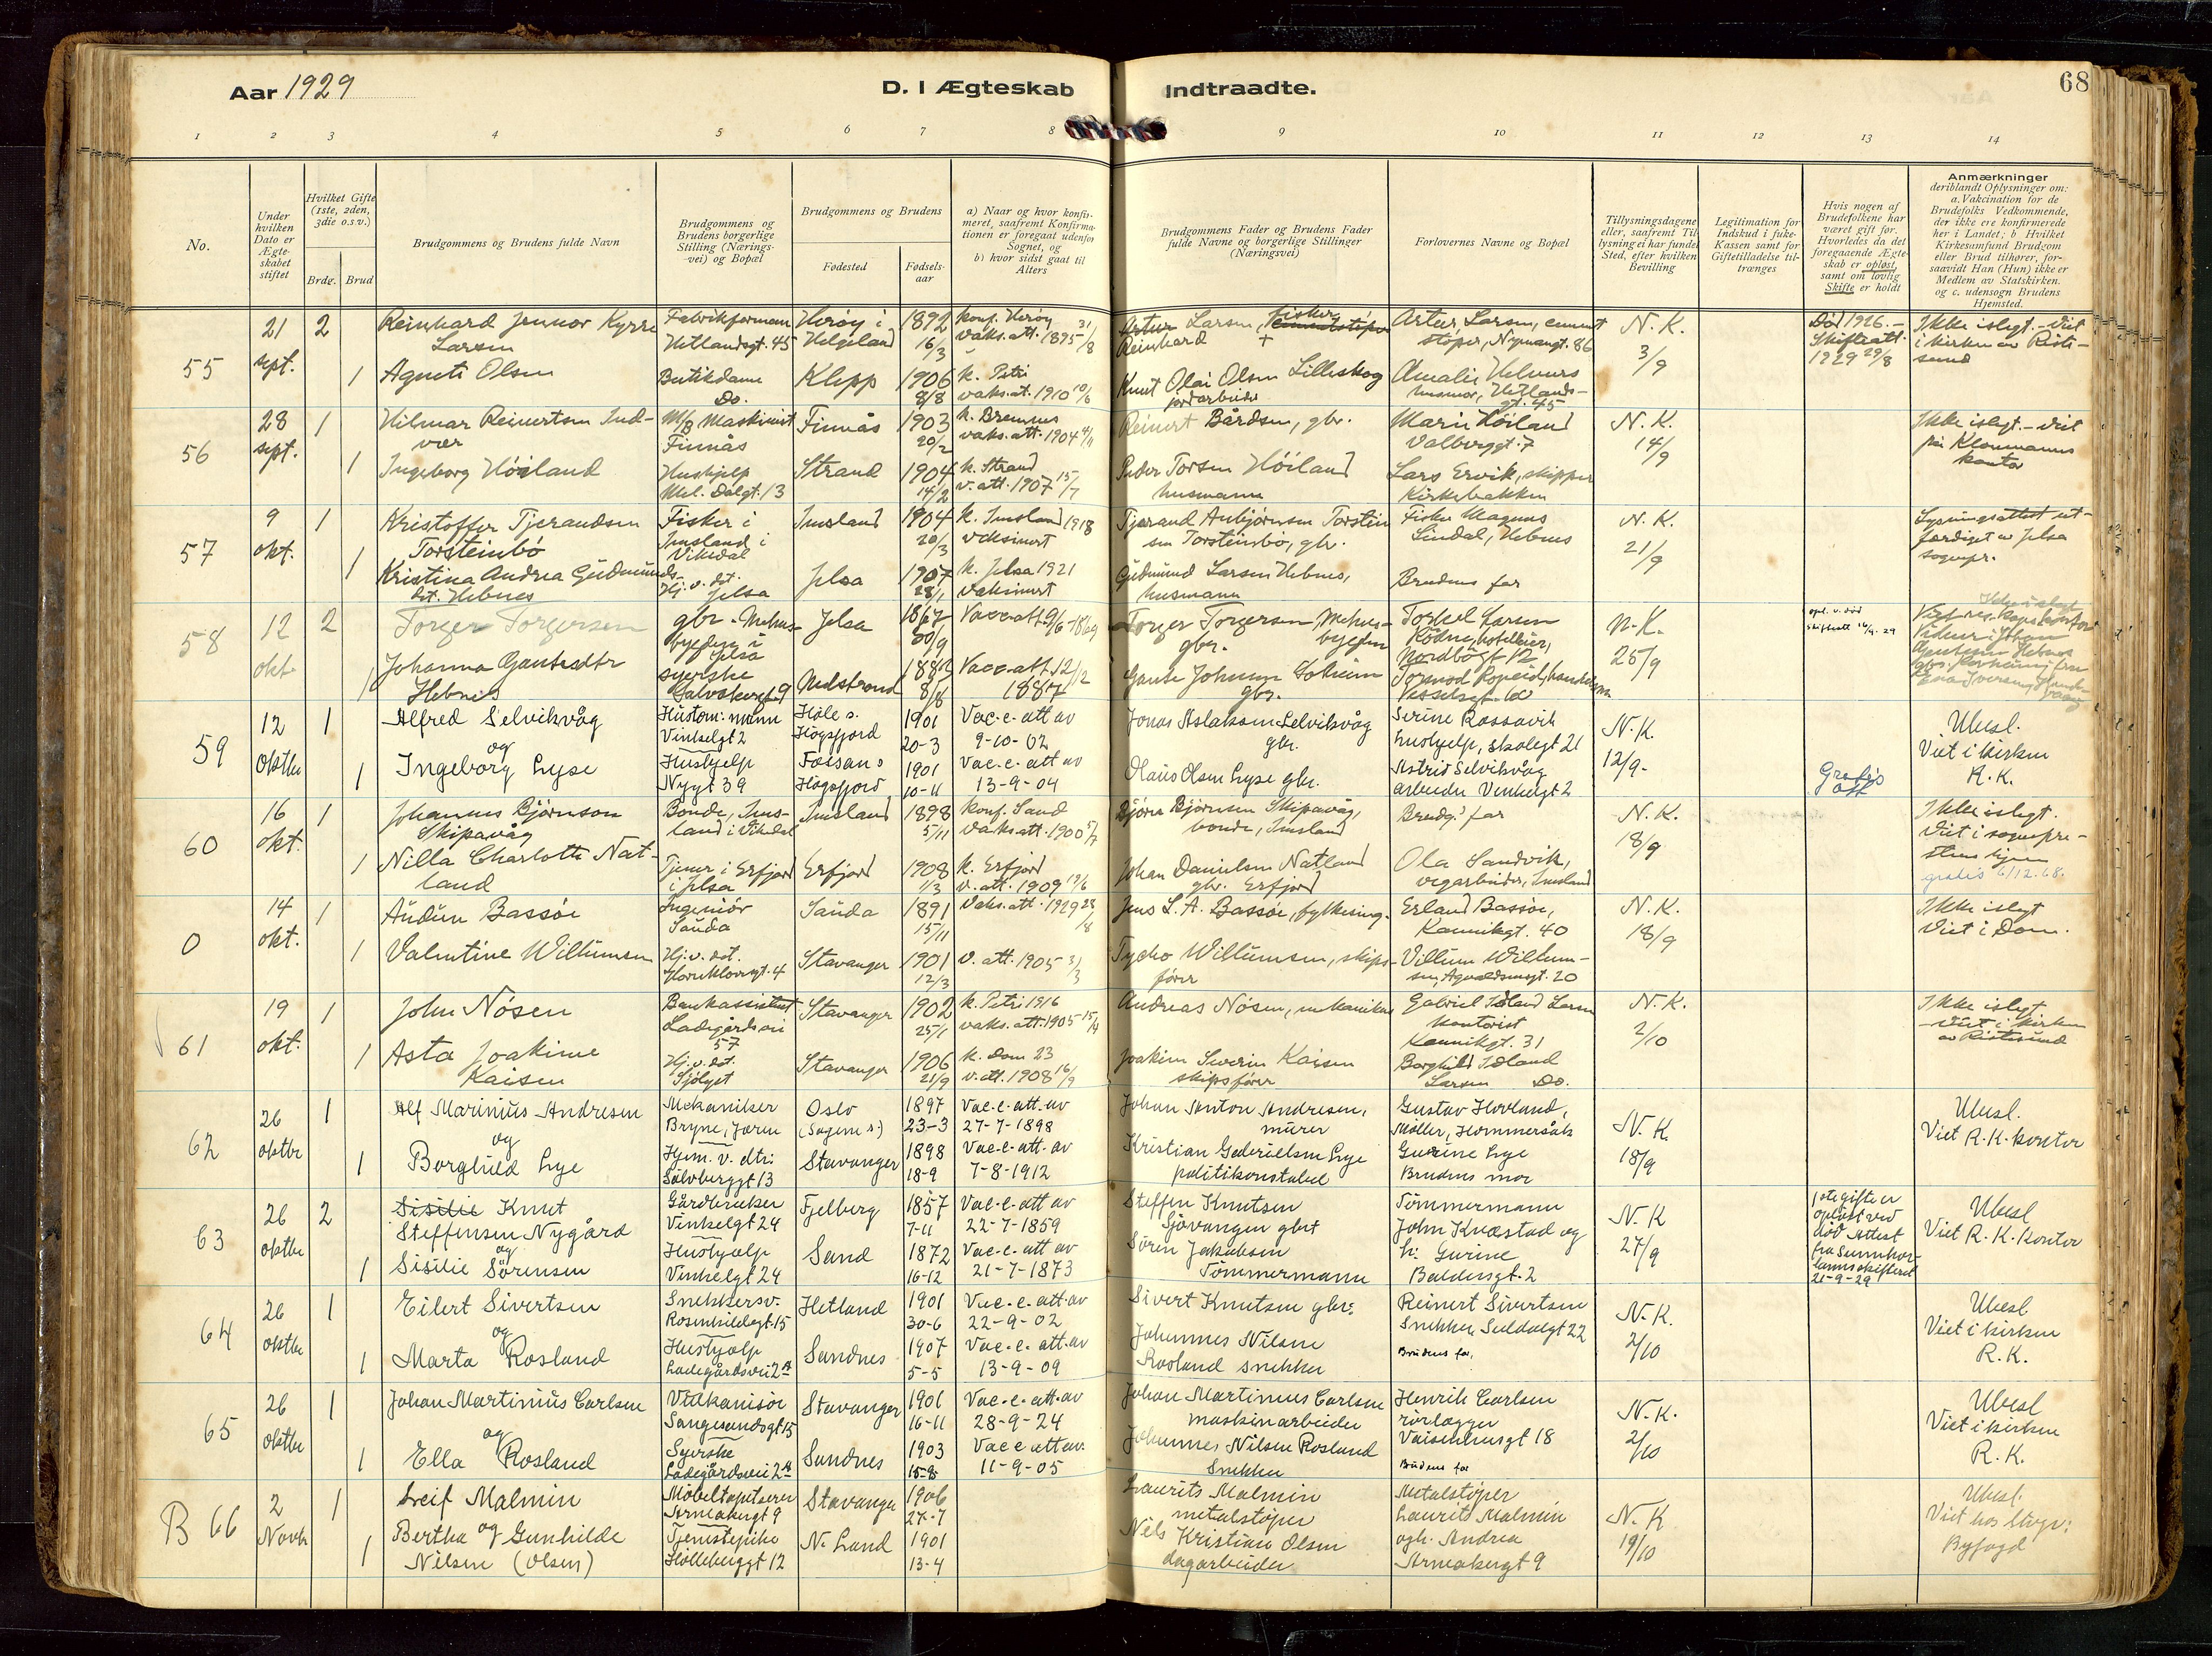 Aar 1929
D. I Ægteskab Indtraadte.
68
1 2 3 4 5 6 7 8 9 10 11 12 13 14
No.
Under hvilken Dato er Ægteskabet stiftet
Hvilket Gifte (1ste, 2den, 3die o.s.v.)
Brdg. Brud
Brudgommens og Brudens fulde Navn
Brudgommens og Brudens borgerlige Stilling (Næringsvei) og Bopæl
Brudgommens og Brudens
Fødested
Fødselsaar
a) Naar og hvor konfirmeret, saafremt Konfirmationen er foregaat udenfor Sognet, og
b) hvor sidst gaat til Alters
Brudgommens Fader og Brudens Fader fulde Navne og borgerlige Stillinger (Næringsvei)
Forlovernes Navne og Bopæl
Tillysningsdagene eller, saafremt Tillysning ei har fundet Sted, efter hvilken Bevilling
Legitimation for Indskud i Enke-Kassen samt for Giftetilladelse tiltrænges
Hvis nogen af Brudefolkene har været gift før. Hvorledes da det foregaaende Ægteskab er opløst, samt om lovlig Skifte er holdt
Anmærkninger
deriblandt Oplysninger om: a. Vakcination for de Brudefolks Vedkommende, der ikke ere konfirmerede her i Landet; b Hvilket Kirkesamfund Brudgom eller Brud tilhører, forsaavidt Han (Hun) ikke er Medlem av Statskirken. og c. udensogn Brudens Hjemsted.
55
21 sept.
2
Reinhard Kyrre Larsen
Fabrikforman Hetlandsgt. 45
Herøy i Helgeland
1892 16/3
konf. Herøy vaks. att. 1895 31/8
Artur Larsen, fisker cementstøper
Reinhard +
Artur Larsen, cement støper, Nymangt. 86
N. K. 3/9
Død 1926. - Skifteatt. 1929 29/8
Ikke i slegt. - Viet i kirken av Ristesund
1
Agneta Olsen
Butikdame Do.
Klepp
1906 8/8
k. Petri vaks. at. 1910 10/6
Knut Olai Olsen Lilleskog jordarbeider
Amalie Helmers husmor, Hetlandsgt. 45
56
28 sept.
1
Hilmar Reinertsen Indvær
M/B Maskinist Finnås
Finnås
1903 20/2
k. Bremnes vaks. att. 1904 4/11
Reinert Bårdsen, gbr.
Marie Höiland Valberggt. 7
N. K. 14/9
Ikke i slegt. - Viet på Klommanns kontor
1
Ingeborg Höiland
Hushjelp Mel. Dalgt. 13
Strand
1904 14/2
k. Strand v. att. 1907 15/7
Peder Torsen Höiland husmann
Lars Ervik, skipper Kirkebakken
57
9 okt.
1
Kristoffer Tjerandsen Torsteinbö
Fisker i Imsland i Vikedal
Imsland
1904 20/3
k. Imsland 1918 vaksinert
Tjerand Anbjörnsen Torsteinsen Torsteinbö, gbr.
Fisker Magnus Lindal, Hebnes
N. K. 21/9
Lysningsattest utferdiget av Jelsa sognepr.
1
Kristina Andrea Gudmundsdt. Hebnes
Hj. v. det. Jelsa
Jelsa
1907 28/1
k. Jelsa 1921 vaksinert
Gudmund Larsen Hebnes, husmann
Brudens far
58
12 okt
2
Torger Torgersen
gbr. Mehusbygden i Jelsa
Jelsa
1867 20/9
Vacc. att. 9/6 - 1869
Torger Torgersen Mehusbygden gbr.
Torkel Larsen Rödne, hotelleier, Nordbögt. 12
N. K. 25/9
opl. v. död skifteatt 14/9. 29
Ikke i slegt
1
Johanna Gautesdtr Hebnes
syerske
Nedstrand
1882 8/8
Vacc. att. 12/12 1887
Gaute Johnsen Solheim gbr.
Tormod Ropeid,
59
12 oktbr
1
Alfred Selvikvåg
og
Hustom. mann Vinkelgt 2
Høle s. Høgsfjord
1901 20-3
Vac. e. att av 9-10-02
Jonas Aslaksen Selvikvåg gbr.
Serine Rossavik hushjelp, skolegt 21
N. K. 12/9-
Gratis att
Ubesl. Viet i kirken R. K.
1
Ingeborg Lyse
Hushjelp Nygt 39
Forsan s Høgsfjord
1901 10-11
Vac. e. att av 13-9-04
Olaus Olsen Lyse gbr.
Astrid Selvikvåg arbeider Vinkelgt 2
60
16 okt.
1
Johannes Bjørnson Skipavåg
Bonde, Imsland i Vikedal
Imsland
1898 5/11
Konf. Sand vaks att. 1900 5/7
Bjørn Bjørnsen Skipavåg, bonde, Imsland
Brudg.s far
N. K. 18/9
Ikke i slegt. Viet i sogneprestens hjem
gratis 6/12.68.
1
Nilla Charlotte Natland
Tjener i Erfjord i Jelsa
Erfjord
1908 1/3
k. Erfjord v. att. 1909 19/6
Johan Danielsen Natland gbr. Erfjord
Ola Sandvik, vegarbeider, Imsland
0
14 okt.
1
Audun Bassøe
Ingeniör Sauda
Sauda
1891 15/11
Vaks. att. 1929 28/8
Jens L. A. Bassøe, fylkesing.
Erland Bassøe, Kannikgt. 40
N. K. 18/9
Ikke i slegt Viet i Dom.
1
Valentine Willumsen
Hj. v. det. Harukloovgt. 4
Stavanger
1901 12/3
v. att. 1905 3/3
Tycho Willumsen, skipsfører
Villum Willumsen, Agvaldsmsgt. 20
61
19 okt.
1
John Nösen
Bankassistent Ladegårdsvei 57
Stavanger
1902 25/1
k. Petri 1916 vaks. att. 1905 15/4
Andreas Nösen, mekaniker
Gabriel Idland Larsen kontorist Kannikgt. 31
N. K. 2/10
Ikke i slegt. - Viet i kirken av Ristesund
1
Asta Joakime Kaisen
Hj. v. det. Sjölyst
Stavanger
1906 21/9
k. Dom 23 v. att. 1908 16/9
Joakim Severin Kaisen skipsfører
Borghild Idland Larsen Do.
62
26 oktbr
1
Alf Marinius Andresen
og
Mekaniker Bryne, Jæren
Oslo (Sagene s.)
1897 23-3
Vac. e. att. av 27-7-1898
Johan Anton Andresen, murer
Gustav Hovland, Møller, Hommersåk
N. K. 18/9
Ubesl. Viet R. K. kontor
1
Borghild Lye
Hjem. v. dtr: Sølvberggt 13
Stavanger
1898 18-9
Vac. e. att. av 7-8-1912
Kristian Gabrielsen Lye politikonstabel
Gurine Lye Brudens mor
63
26 oktbr
2
Sisilie Knut Steffensen Nygård
og
Gårdbruker Vinkelgt 24
Fjelberg
1857 7-11
Vac. e. att av 22-7-1859
Steffen Knutsen Sjøvangen gbr
Tømmermann John Knæstad og
N. K 27/9
1ste gifte er opløst ved död Attest fra Sunnhorlannskifterett 21-9-29
Ubesl Viet R. K. kontor
1
Sisilie Sørensen
Hushjælp Vinkelgt 24
Sand
1872 16-12
Vac. e. att av 21-7-1873
Søren Jakobsen Tømmermann
h: Gurine Baldersgt. 2
64
26 oktbr
1
Eilert Sivertsen
og
Snekkersv. Rosenkildegt. 15
Hetland
1901 30-6
Vac. e. att. av 22-9-02
Sivert Knutsen gbr:
Reinert Sivertsen Snekker Suldalgt 22
N. K. 2/10
Ubesl. Viet i kirken R. K.
1
Marta Rosland
Hushjælp Ladegårdsvei 2A
Sandnes
1907 5-5
Vac. e. att. av 13-9-09
Johannes Nilsen Rosland snekker
Brudens far
65
26 oktbr
1
Johan Martinius Carlsen
og
Vulkanisör Sangesandsgt 15
Stavanger
1901 16-11
Vac. e. att. av 28-9-24
Johan Martinius Carlsen maskinarbeider
Henrik Carlsen rørlægger Vaisenhusgt 18
N. K. 2/10
Ubesl Viet i kirken R. K.
1
Ella Rosland
Syerske Ladegårdsvei 2A
Sandnes
1903 15-8
Vac e att av. 11-9-05
Johannes Nilsen Rosland Snekker
Brudens far
B 66
2 Novbr
1
Leif Malmin
og
Møbeltapetserer Arneabergt 9
Stavanger
1906 27-7
Laurits Malmin metalstøper
Metalstøper Laurits Malmin
N. K 19/10
Ubesl. Viet hos Stvgr: Byfogd
1
Bertha Gunhilde Nilsen (Olsen)
Tjenestepike Holleberggt 12
N. Land
1901 13-4
Nils Kristian Olsen dagarbeider
ogh. Andrea Arneabergt 9